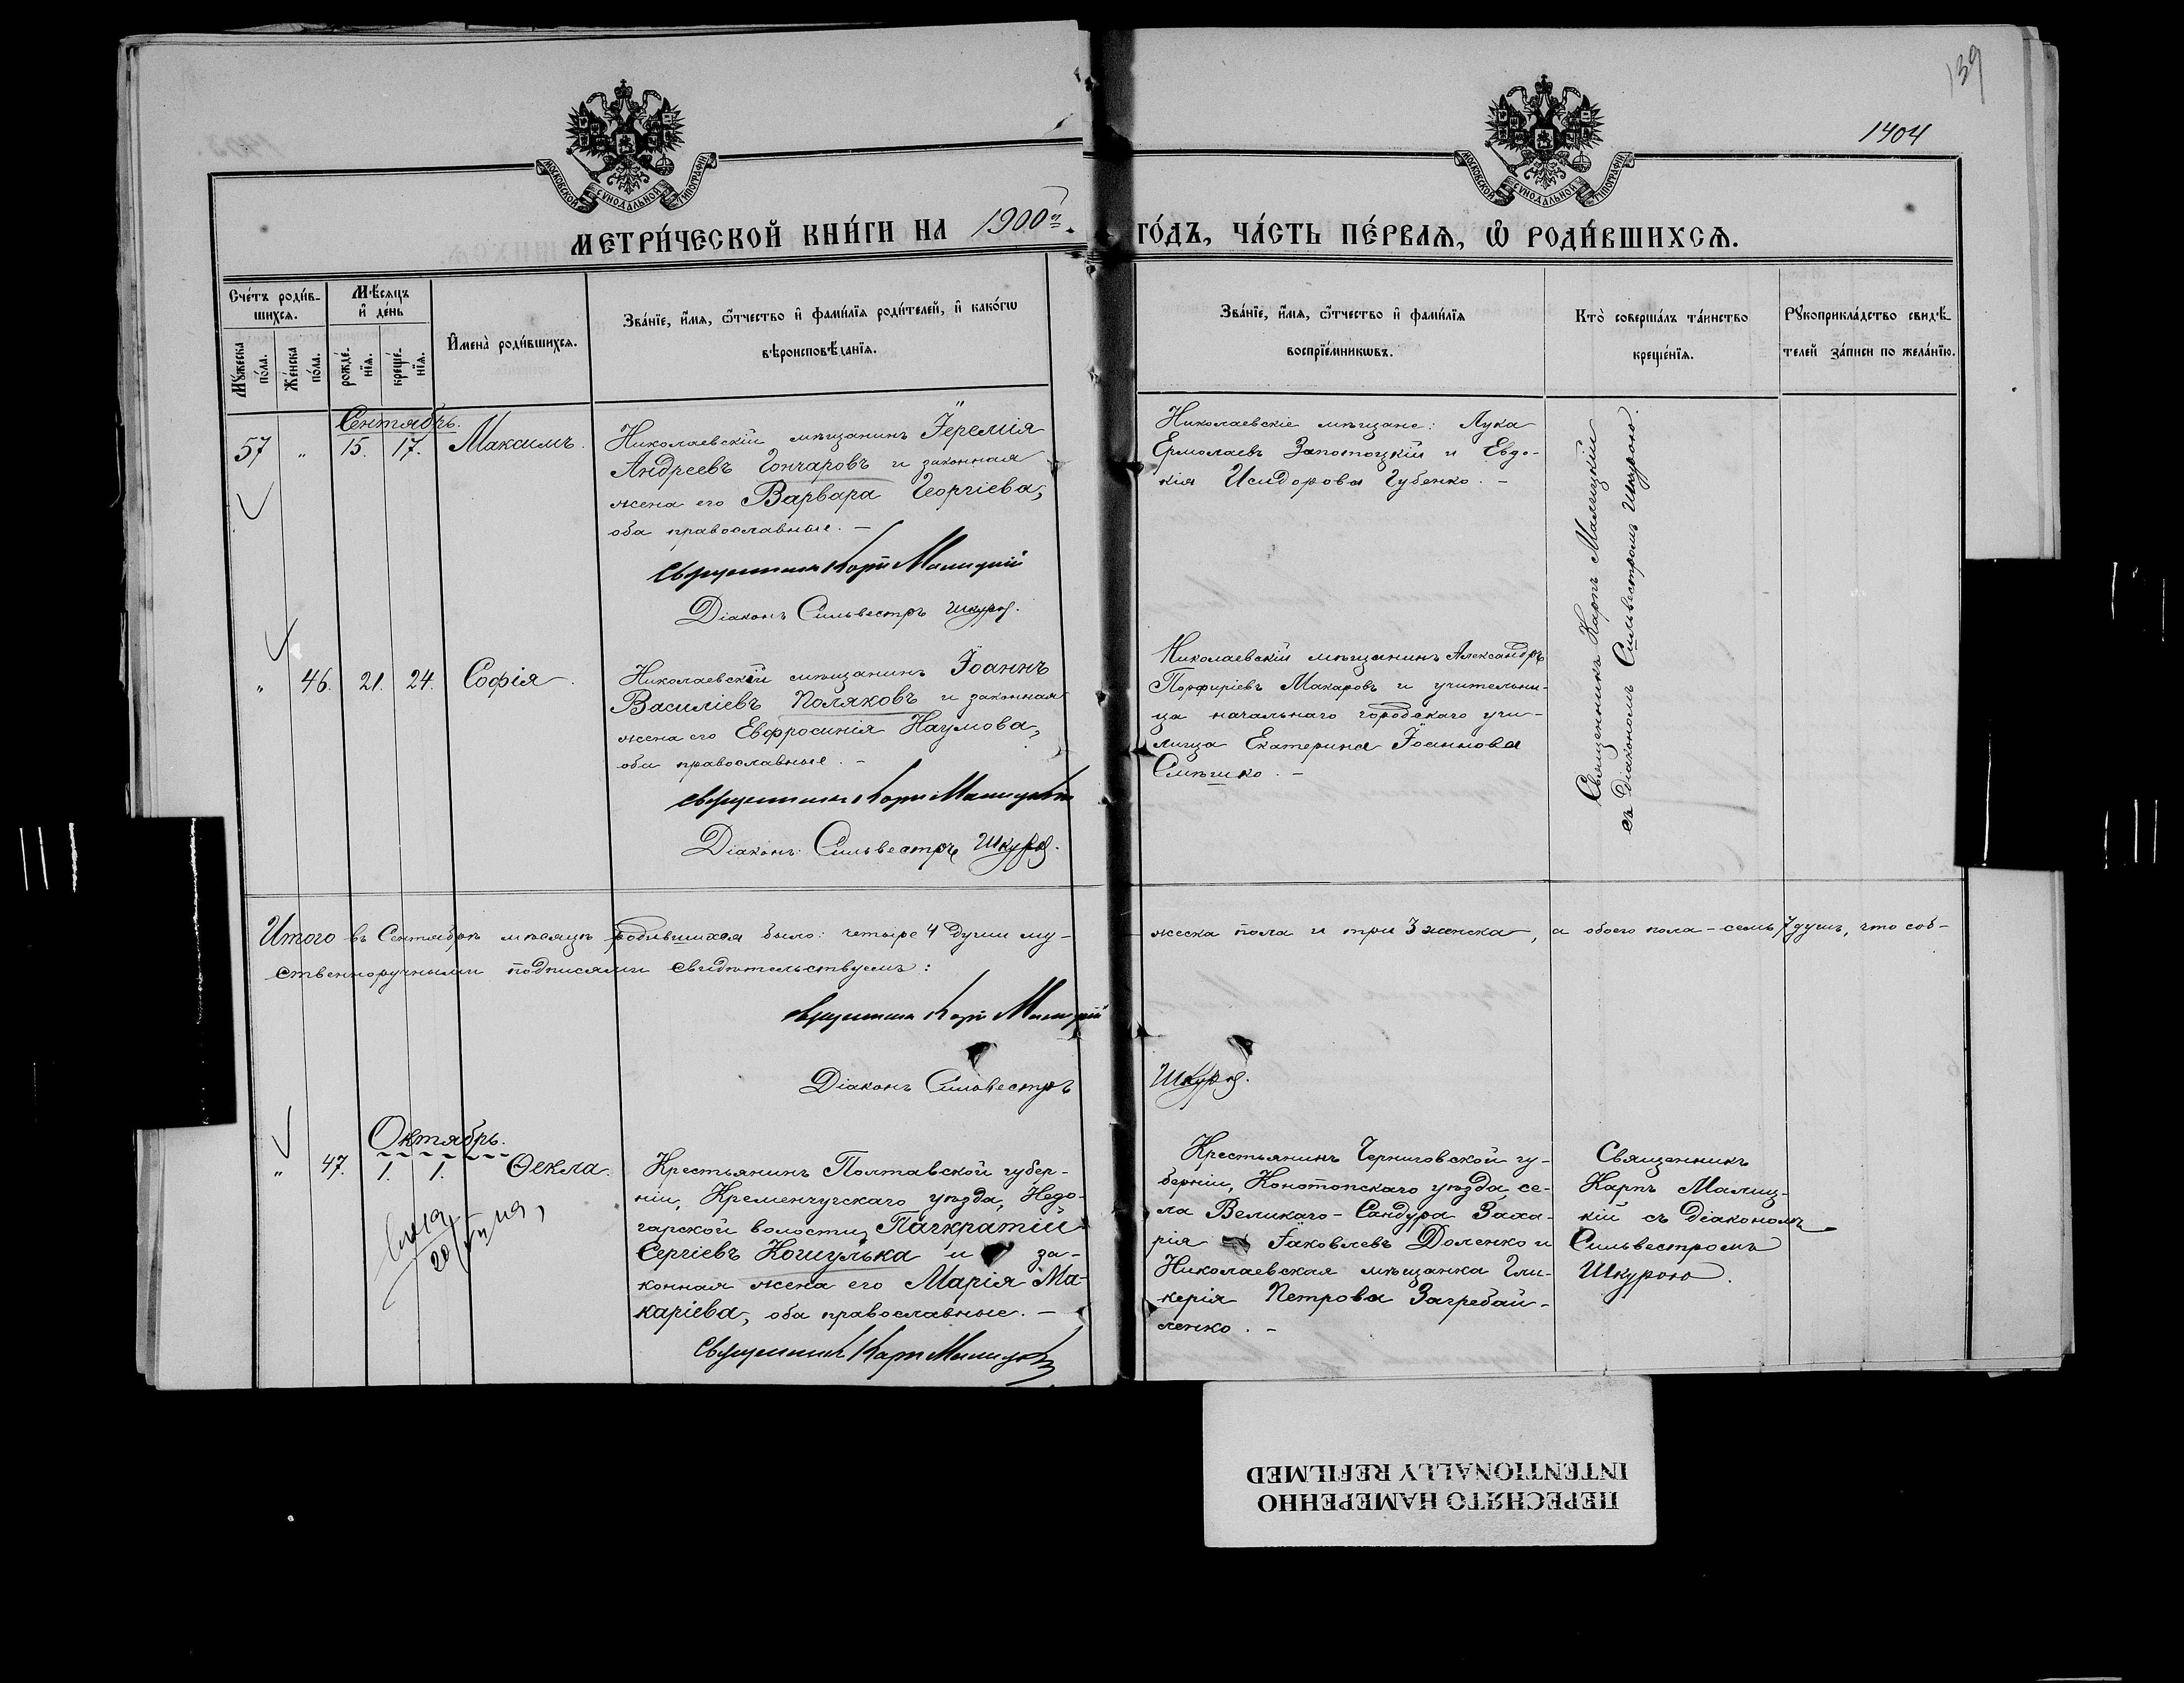 139
1404
МОСКОВСКОЙ СѴНОДАЛЬНОЙ ТИПОГРАФІИ
МОСКОВСКОЙ СѴНОДАЛЬНОЙ ТИПОГРАФІИ
МЕТРИ́ЧЕСКОЙ КНИ́ГИ НА 1900й.
ГО́ДЪ, ЧА́СТЬ ПЕ́РВАѦ, Ѡ РОДИ́ВШИХСѦ.
Сче́тъ роди́в-
шихсѧ.
Мꙋ́жеска по́ла.
Же́нска по́ла.
Мѣ́сѧцъ
и҆ де́нь
рожде́-
нїѧ.
креще́-
нїѧ.
И҆мена̀ роди́вшихсѧ.
Зва́нїе, и҆́мѧ, ѻ҆́тчество и҆ фами́лїѧ роди́телей, и҆ како́гѡ
вѣроисповѣ́данїѧ.
Зва́нїе, и҆́мѧ, ѻ҆́тчество и҆ фами́лїѧ
воспрїе́мникѡвъ.
Кто̀ соверша́лъ та́инство
креще́нїѧ.
Рꙋкоприкла́дство свидѣ́-
телей за́писи по жела́нїю.
Сентябрь.
57 " 15. 17. Максимъ.
Николаевскій мѣщанинъ Іеремія
Андреевъ Гончаровъ и законная
жена его Варвара Георгіева,
оба православные. –
Священникъ Карпъ Малицкій
Діаконъ Сильвестръ Шкура.
Николаевскіе мѣщане: Лука
Ермолаевъ Запотоцкій и Евдо-
кія Исидорова Губенко. –
Священникъ Карпъ Малицкій
съ діакономъ Сильвестромъ Шкурою.
" 46. 21. 24. Софія.
Николаевскій мѣщанинъ Іоаннъ
Василіевъ Поляковъ и законная
жена его Евфросинія Наумова,
оба православные. –
Священникъ Карпъ Малицкій
Діаконъ Сильвестръ Шкура.
Николаевскій мѣщанинъ Александръ
Порфиріевъ Макаровъ и учительни-
ца начальнаго городскаго учи-
лища Екатерина Іоаннова
Смѣшко. –
Итого въ Сентябрѣ мѣсяцѣ родившихся было: четыре 4 души му-
жеска пола и три 3 женска, а обоего пола – семь 7 душъ, что соб-
ственноручными подписями свидѣтельствуемъ:
Священникъ Карпъ Малицкій
Діаконъ Сильвестръ
Шкура.
Октябрь.
" 47. 1. 1. Ѳекла.
Крестьянинъ Полтавской губер-
ніи, Кременчугскаго уѣзда, Недо-
гарской волости, Панкратій
Сергіевъ Кошулька и за-
конная жена его Марія Ма-
каріева, оба православные. –
Священникъ Карпъ Малицкій
Крестьянинъ Черниговской гу-
берніи, Конотопскаго уѣзда, се-
ла Великаго-Самбура Заха-
рія Іаковлевъ Доленко и
Николаевская мѣщанка Гли-
керія Петрова Загребай-
ленко. –
Священникъ
Карпъ Малиц-
кій съ діакономъ
Сильвестромъ
Шкурою.
ПЕРЕСНЯТО НАМЕРЕННО
INTENTIONALLY REFILMED